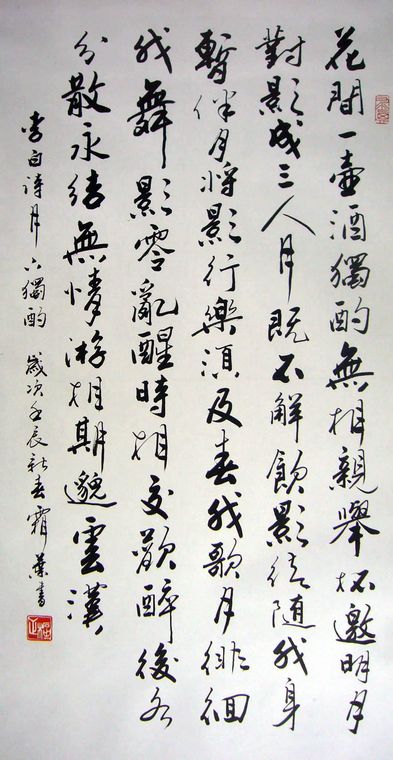 花間一壺酒獨酌無相親舉杯邀明月
對影成三人月既不解飲影徒隨我身
暫伴月將影行樂須及春我歌月徘徊
我舞影零亂醒時相交歡醉後各
分散永結無情游相期邈雲漢
李白诗月下獨酌 歲次壬辰新春霜葉書